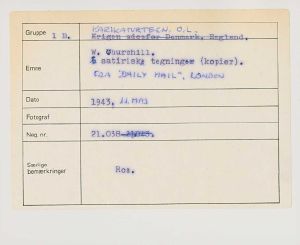 KARIKATURTEGN. O.L.
Gruppe 1 D. Krigen udenfor Danmark, England.
W. Churchill.
Emne 6 satiriske tegninger (kopier).
FRA "DAILY MAIL", LONDON
Dato 1943. 22. MAJ
Fotograf
Neg. nr. 21.038-21.043.
Særlige
bemærkninger Hos.